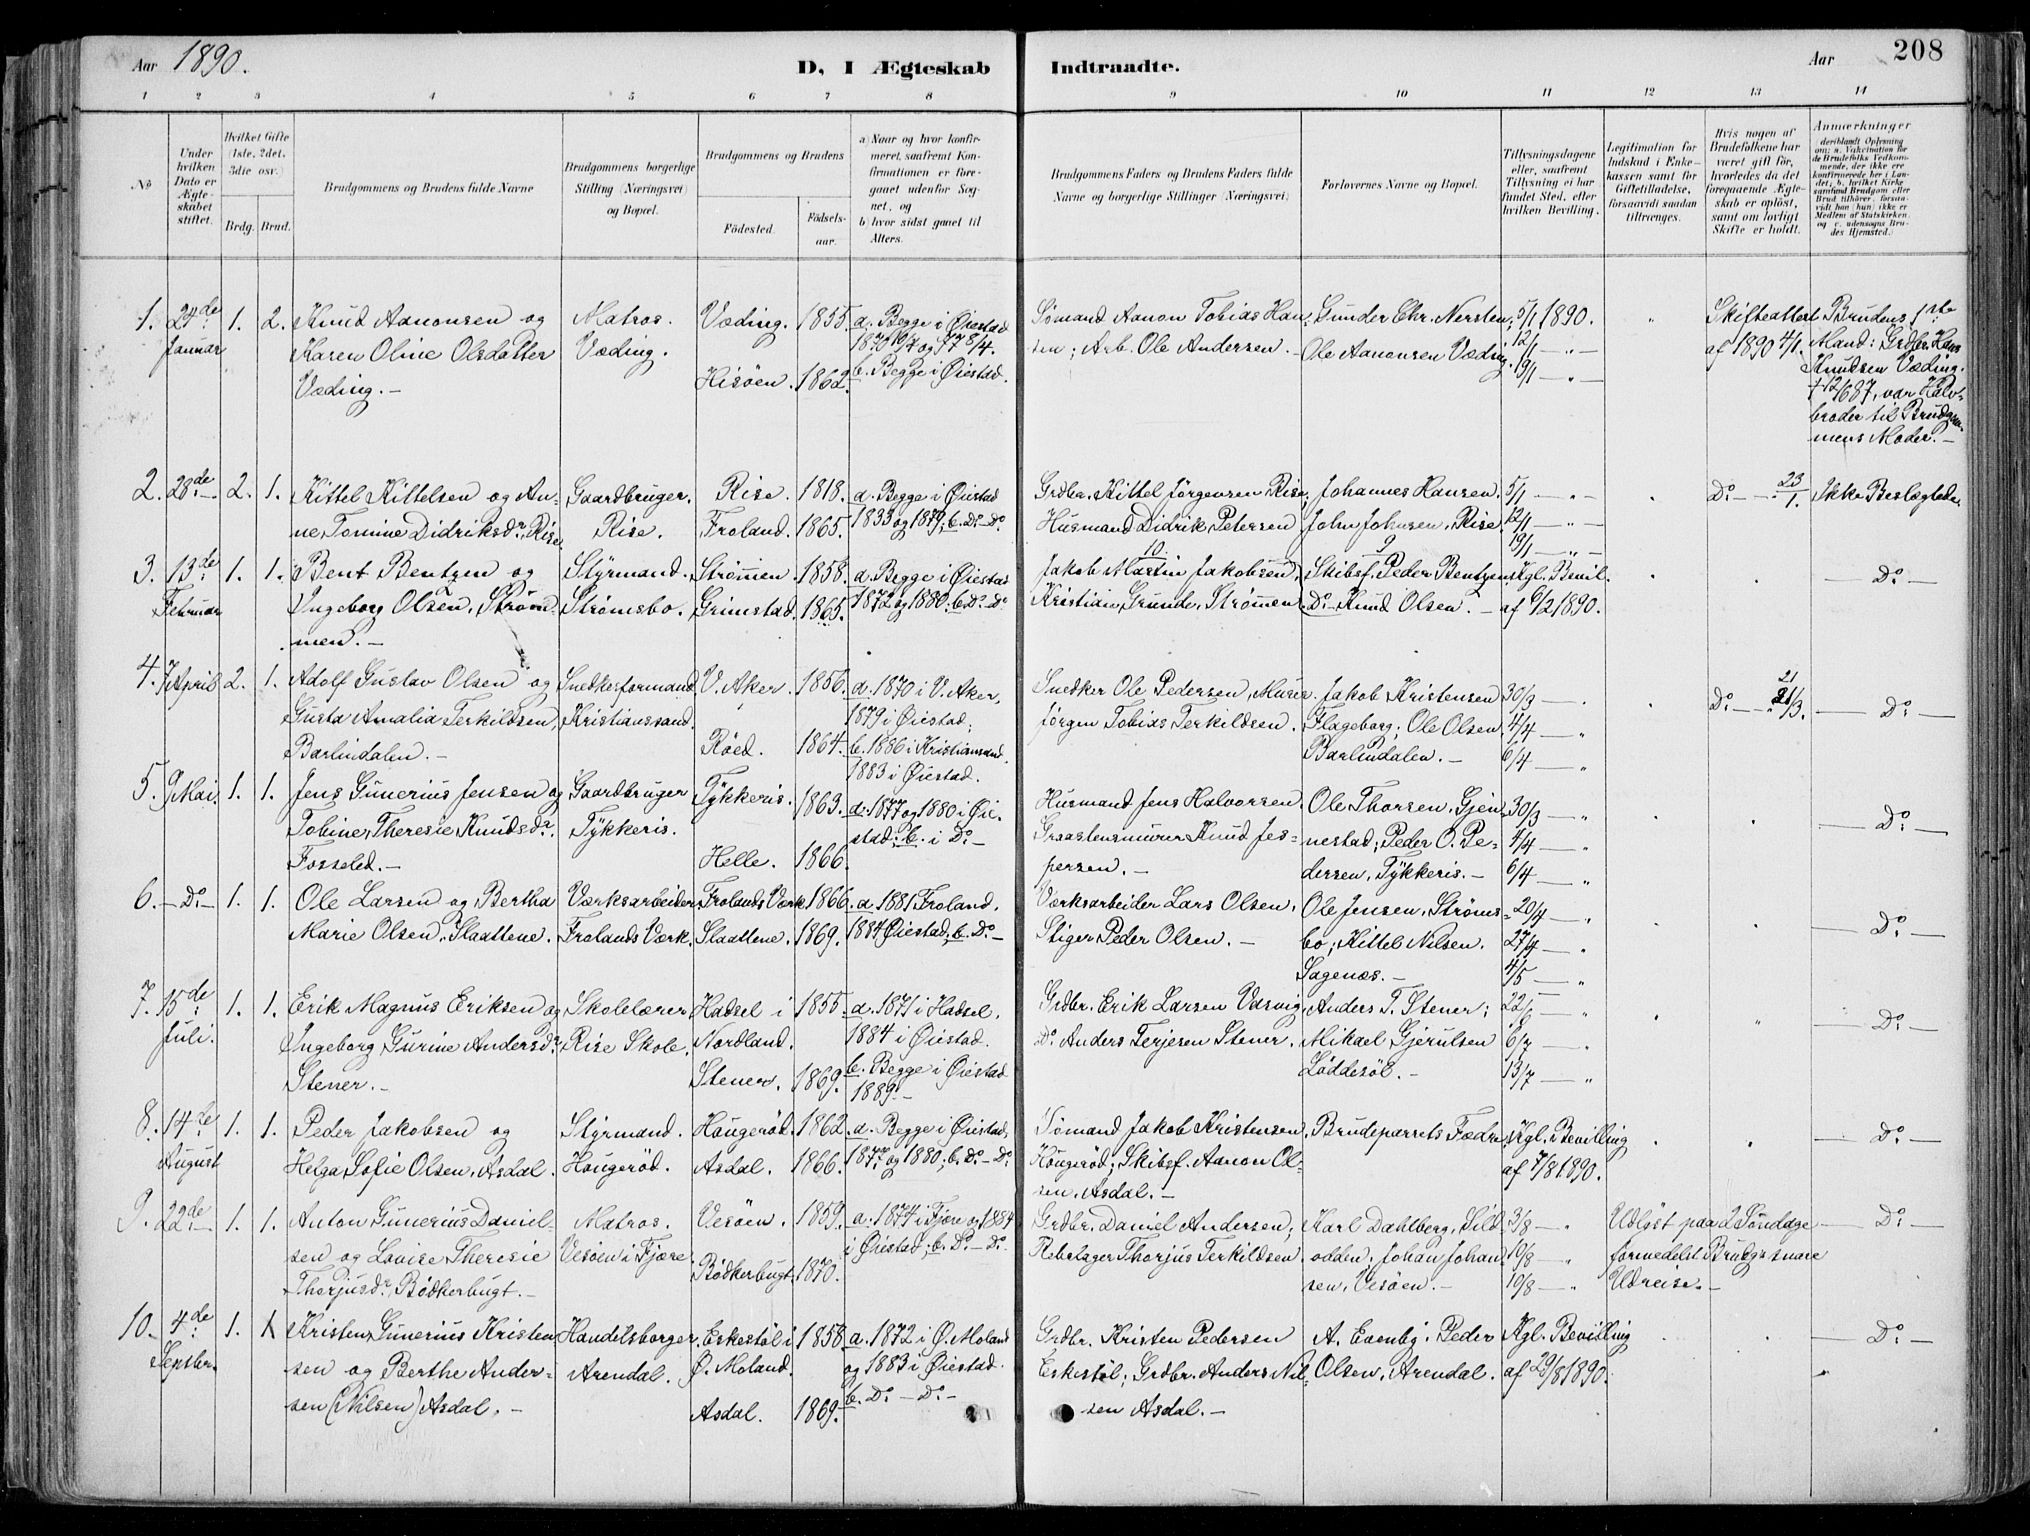 Aar 1890.
D, I Ægteskab Indtraadte.
Aar
208
1 2 3 4 5 6 7 8 9 10 11 12 13 14
No
Under hvilken Dato er Ægteskabet stiftet.
Hvilket Gifte (1ste, 2det, 3die osv.)
Brdg. Brud.
Brudgommens og Brudens fulde Navne
Brudgommens borgerlige Stilling (Næringsvei) og Bopæl.
Brudgommens og Brudens
Födested. Födsels-aar.
a) Naar og hvor konfirmeret, saafremt Konfirmationen er foregaaet udenfor Sognet, og
b) hvor sidst gaaet til Alters.
Brudgommens Faders og Brudens Faders fulde Navne og borgerlige Stillinger (Næringsvei)
Forlovernes Navne og Bopæl.
Tillysningsdagene eller, saafremt Tillysning ei har fundet Sted, efter hvilken Bevilling.
Legitimation for Indskud i Enkekassen samt for Giftetilladelse, forsaavidt saadan tiltrænges.
Hvis nogen af Brudefolkene har været gift för, hvorledes da det foregaaende Ægteskab er oplöst, samt om lovligt Skifte er holdt.
Anmærkninger
1. 24de Januar 1. 2. Knud Aanonsen og
Karen Oline Olsdatter
Væding. –
Matros.
Væding.
Væding. 1855.
Hisöen. 1862.
a. Begge i Øiestad
1870 10/4 og 77 8/4.
b. Begge i Øiestad.
Sömand Aanon Tobias Han-
sen; Arb. Ole Andersen. –
Gunder Chr. Nersten;
Ole Aanonsen Væding.
5/1 1890.
12/1 — " —
19/1 — " —
"
Skifteattest
af 1890 4/1.
Brudens 1ste
Mand: Grdbr. Hans
Knudsen Væding.
† 12/6 87, var Halv-
broder til Brudgom-
mens Moder. –
2. 28de — 2. 1. Kittel Kittelsen og An-
ne Tomine Didriksdr, Rise.
Gaardbruger.
Rise.
Rise. 1818.
Froland. 1865.
a. Begge i Øiestad
1833 og 1879; b. Do – Do.
Grdbr. Kittel Jörgensen Rise;
Husmand Didrik Petersen
Johannes Hansen.
John Johnsen, Rise.
5/1 — " —
12/1 — " —
19/1 — " —
Do — " — 23/1.
Ikke Beslægtede.
3. 13de Februar 1. 1. Bent Bentzen og
Ingeborg Olsen, Ström-
men. –
Styrmand.
Strömsbo.
Strömmen. 1858.
Grimstad. 1865.
a. Begge i Øiestad
1872 og 1880; b. Do – Do
10.
Jakob Martin Jakobsen,
Kristian Grunde, Strömmen
9
Skibsf. Peder Bentzen
Do – Knud Olsen. –
Kgl. Bevil.
af 6/2 1890.
— Do —
4. 7 April 2. 1. Adolf Gustav Olsen og
Gusta Amalia Terkildsen,
Barlindalen. –
Snedkerformand
Kristianssand.
V. Aker. 1856.
Röed. 1864.
a. 1870 i V. Aker,
1879 i Øiestad;
b. 1886 i Kristianssand,
1883 i Øiestad.
Snedker Ole Pedersen, Murer
Jörgen Tobias Terkildsen.
Jakob Kristensen
Flageborg; Ole Olsen
Barlindalen. –
30/3 — "
4/4 — "
6/4 — "
Do — " — 21/3.
— Do —
5. 9 Mai. 1. 1. Jens Gunerius Jensen og
Tobine Theresie Knudsdr.
Fosseled. –
Gaardbruger
Tykkeris.
Tykkeris. 1863.
Helle. 1866.
a. 1877 og 1880 i Øie-
stad; b. i Do –
Husmand Jens Halvorsen.
Graastensmurer Knud Jes-
persen. –
Ole Thorsen, Gjen-
nestad; Peder O. Pe-
dersen, Tykkeris. –
30/3 — "
4/4 — "
6/4 — "
— Do —
6. – Do – 1. 1. Ole Larsen og Bertha
Marie Olsen, Slaattene.
Værksarbeider.
Frolands Værk.
Frolands Værk 1866.
Slaattene. 1869.
a. 1881 Froland,
1884 Øiestad; b. Do –
Værksarbeider Lars Olsen,
Stiger Peder Olsen. –
Ole Jensen, Ströms-
bo; Kittel Nilsen.
Sagenæs. –
20/4 — "
27/4 — "
4/5 — "
— Do —
7. 15de Juli. 1. 1. Erik Magnus Eriksen og
Ingeborg Gurine Andersdr
Stener. –
Skolelærer
Rise Skole.
Hadsel i
Nordland. 1855.
Stener. 1869.
a. 1871 i Hadsel,
1884 i Øiestad.
b. Begge i Øiestad
1889. –
Grdbr. Erik Larsen Vasvig,
Do Anders Terjesen Stener.
Anders T. Stener;
Mikael Gjerulsen
Löddesöl. –
22/6 — "
6/7 — "
13/7 — "
— Do —
8. 14de August 1. 1. Peder Jakobsen og
Helga Sofie Olsen, Asdal.
Styrmand.
Hougeröd.
Hougeröd. 1862.
Asdal. 1866.
a. Begge i Øiestad,
1877 og 1880; b. Do – Do
Sömand Jakob Kristensen,
Hougeröd; Skibsf. Aanon Ol-
sen, Asdal. –
Brudeparrets Fædre.
Kgl. Bevilling
af 7/8 1890.
— Do —
9. 22de — 1. 1. Anton Gunerius Daniel-
sen og Lovise Theresie
Thorjusdr Bödkerbugt. –
Matros.
Vesöen i Fjære.
Vesöen. 1859.
Bödkerbugt. 1870.
a. 1874 i Fjære og 1884
i Øiestad; b. Do – Do –
Grdbr. Daniel Andersen;
Rebslager Thorjus Terkildsen.
Karl Dahlberg, Sild-
odden; Johan Johan-
sen, Vesöen. –
3/8 — "
10/8 — "
10/8 — "
Udlöst paa 2 Söndage
formedelst Brudgs snare
Udreise. –
— Do —
10. 4de Septbr. 1. 1. Kristen Gunerius Kristen-
sen og Berthe Ander-
sen (Nilsen) Asdal. –
Handelsborger.
Arendal.
Eskestöl i
Ö. Moland. 1858.
Asdal. 1869.
a. 1872 i Ö. Moland
og 1883 i Øiestad.
b. Do – Do –
Grdbr. Kristen Pedersen
Eskestöl; Grdbr. Anders Nil-
sen Asdal. –
A. Evenby. Peder
Olsen, Arendal.
Kgl. Bevilling
af 29/8 1890.
— Do —